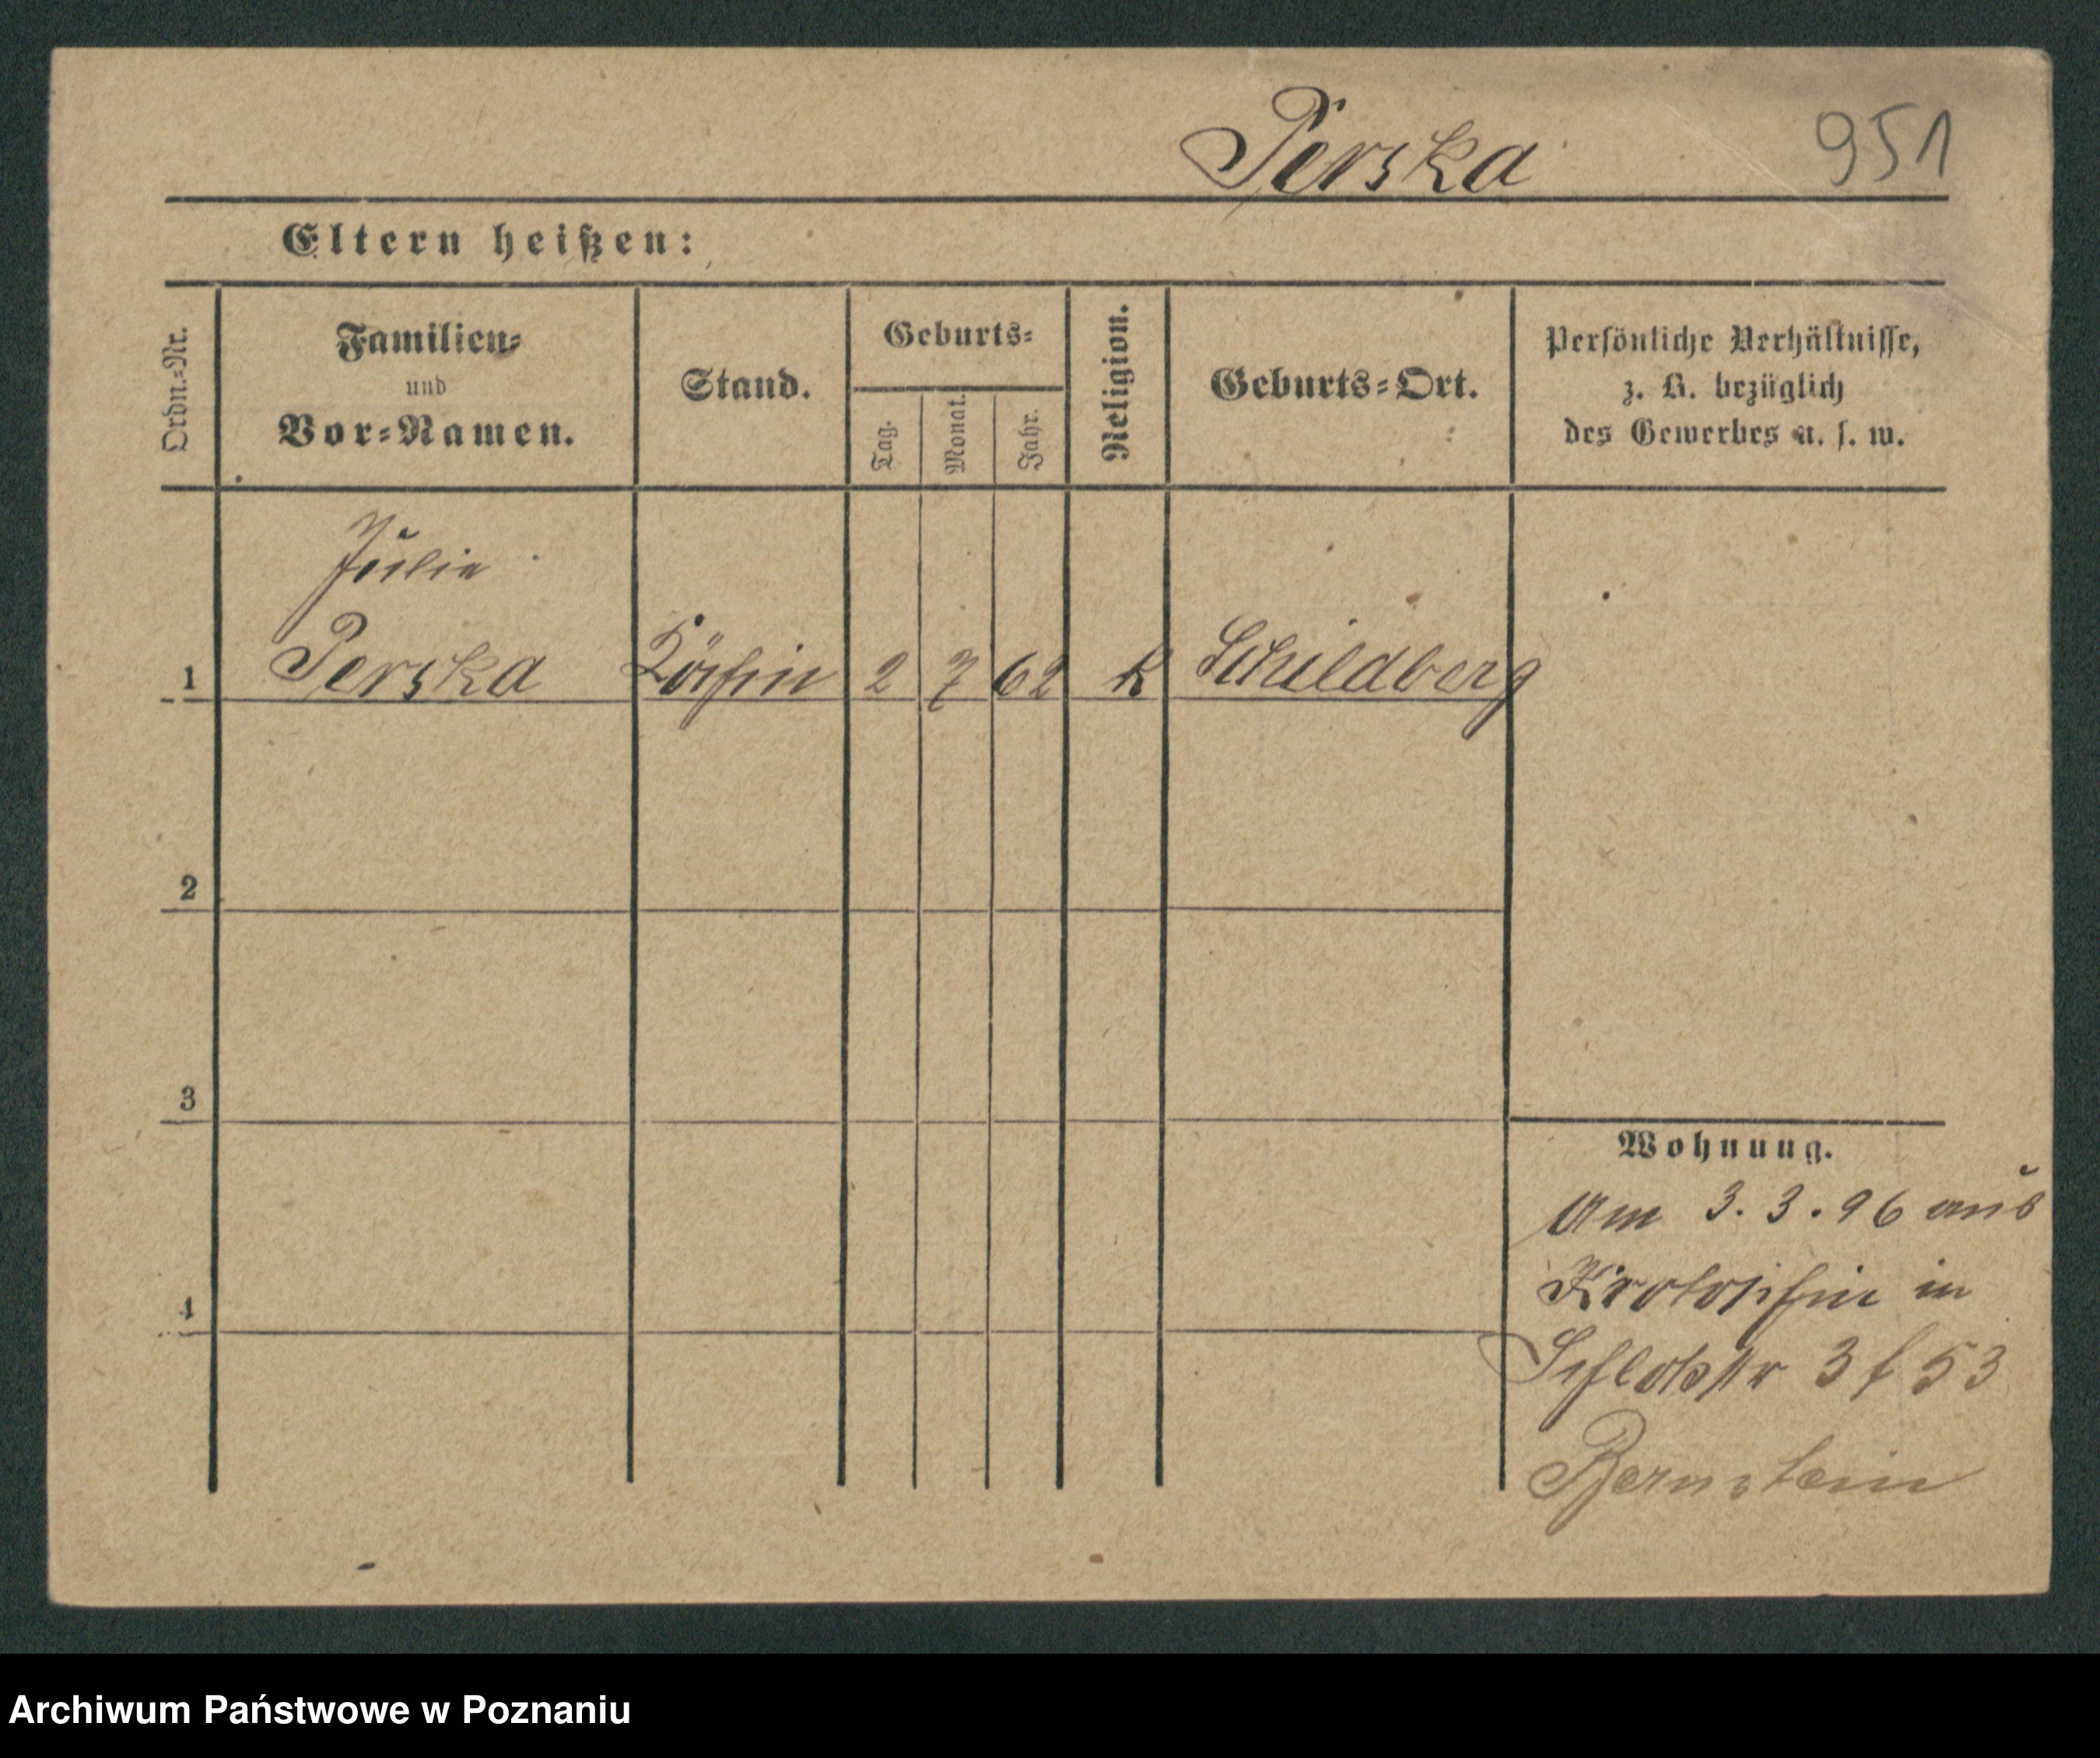 Perska 951
Eltern heißen:
Ordn.-Nr.
Familien-
und
Vor-Namen.
Stand.
Geburts-
Tag.
Monat.
Jahr.
Religion.
Geburts-Ort.
Persönliche Verhältnisse,
z. B. bezüglich
des Gewerbes u. s. w.
Julie
1 Perska Köchin 2 7 62 K Schildberg
2
3
4
Wohnung.
Am 3.3.96 aus
Krotoschin in
Schloßstr 3 f 53
Bernstein
Archiwum Państwowe w Poznaniu